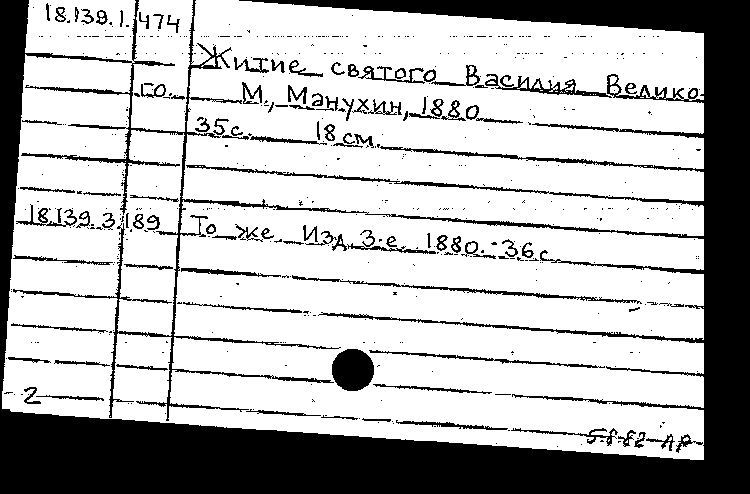 18.139.1.474
Житие святого Василия Велико-
го. М., Манухин, 1880
35с. 18 см.
18.139.3.189 То же. Изд. 3-е. 1880.-36с.
2